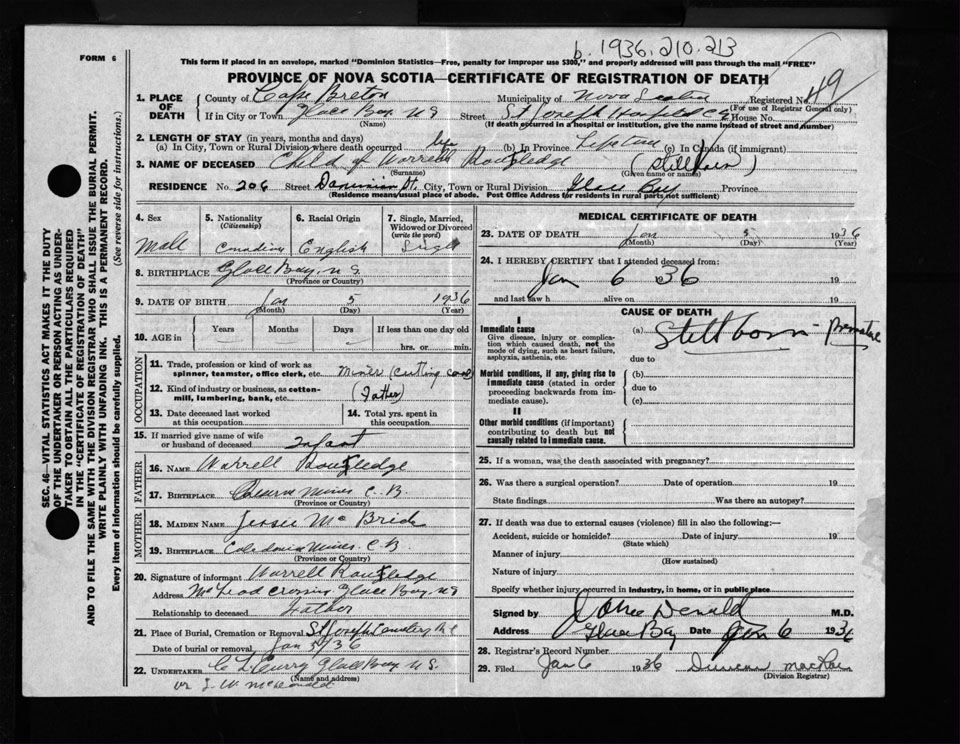 b. 1936.210.213
FORM 6
This form if placed in an envelope, marked "Dominion Statistics—Free, penalty for improper use $300," and properly addressed will pass through the mail "FREE"
PROVINCE OF NOVA SCOTIA—CERTIFICATE OF REGISTRATION OF DEATH
49
SEC. 46—VITAL STATISTICS ACT MAKES IT THE DUTY
OF THE UNDERTAKER OR PERSON ACTING AS UNDER-
TAKER TO OBTAIN ALL THE PARTICULARS REQUIRED
IN THE "CERTIFICATE OF REGISTRATION OF DEATH"
AND TO FILE THE SAME WITH THE DIVISION REGISTRAR WHO SHALL ISSUE THE BURIAL PERMIT.
WRITE PLAINLY WITH UNFADING INK. THIS IS A PERMANENT RECORD.
Every item of information should be carefully supplied. (See reverse side for instructions.)
1. PLACE OF DEATH County of Cape Breton Municipality of Nova Scotia Registered No.
(For use of Registrar General only)
If in City or Town Glace Bay N S Street St Joseph Hospital House No.
(Name) (If death occurred in a hospital or institution, give the name instead of street and number)
2. LENGTH OF STAY (in years, months and days)
(a) In City, Town or Rural Division where death occurred (b) In Province (c) In Canada (if immigrant)
3. NAME OF DECEASED Child of Warrell Routledge (Stillborn)
(Surname) (Given name or names)
RESIDENCE No. 206 Street Dominion St. City, Town or Rural Division Glace Bay Province
(Residence means usual place of abode. Post Office Address for residents in rural parts not sufficient)
4. Sex
Male
5. Nationality
(Citizenship)
Canadian
6. Racial Origin
English
7. Single, Married,
Widowed or Divorced
(write the word)
Single
8. BIRTHPLACE Glace Bay, N S.
(Province or Country)
9. DATE OF BIRTH Jan 5 1936
(Month) (Day) (Year)
10. AGE in Years Months Days If less than one day old
hrs. or min.
OCCUPATION
11. Trade, profession or kind of work as
spinner, teamster, office clerk, etc. Miner (cutting coal)
12. Kind of industry or business, as cotton-
mill, lumbering, bank, etc. (Father)
13. Date deceased last worked
at this occupation
14. Total yrs. spent in
this occupation
15. If married give name of wife
or husband of deceased Infant
FATHER
16. NAME Warrell Routledge
17. BIRTHPLACE Mines C. B.
(Province or Country)
MOTHER
18. MAIDEN NAME Jessie McBride
19. BIRTHPLACE Caledonia Mines, C B.
(Province or Country)
20. Signature of informant Warrell Routledge
Address McLeod crossing Glace Bay, N S
Relationship to deceased Father
21. Place of Burial, Cremation or Removal St Joseph Cemetery
Date of burial or removal Jan 5/36
22. UNDERTAKER C. L. Curry Glace Bay, N S.
(Name and address)
or J. W. McDonald
MEDICAL CERTIFICATE OF DEATH
23. DATE OF DEATH Jan 5 1936
(Month) (Day) (Year)
24. I HEREBY CERTIFY that I attended deceased from:
Jan 6 1936 19
and last saw h alive on 19
CAUSE OF DEATH
I
Immediate cause
Give disease, injury or complica-
tion which caused death, not the
mode of dying, such as heart failure,
asphyxia, asthenia, etc.
(a) Stillborn - Premature
due to
Morbid conditions, if any, giving rise to
immediate cause (stated in order
proceeding backwards from im-
mediate cause).
(b)
due to
(c)
II
Other morbid conditions (if important)
contributing to death but not
causally related to immediate cause.
25. If a woman, was the death associated with pregnancy?
26. Was there a surgical operation? Date of operation 19
State findings Was there an autopsy?
27. If death was due to external causes (violence) fill in also the following:—
Accident, suicide or homicide? Date of injury 19
(State which)
Manner of injury
(How sustained)
Nature of injury
Specify whether injury occurred in Industry, in home, or in public place
Signed by M.D.
Address Glace Bay Date Jan 6 1936
28. Registrar's Record Number
29. Filed Jan 6 1936 Duncan MacRae
(Division Registrar)